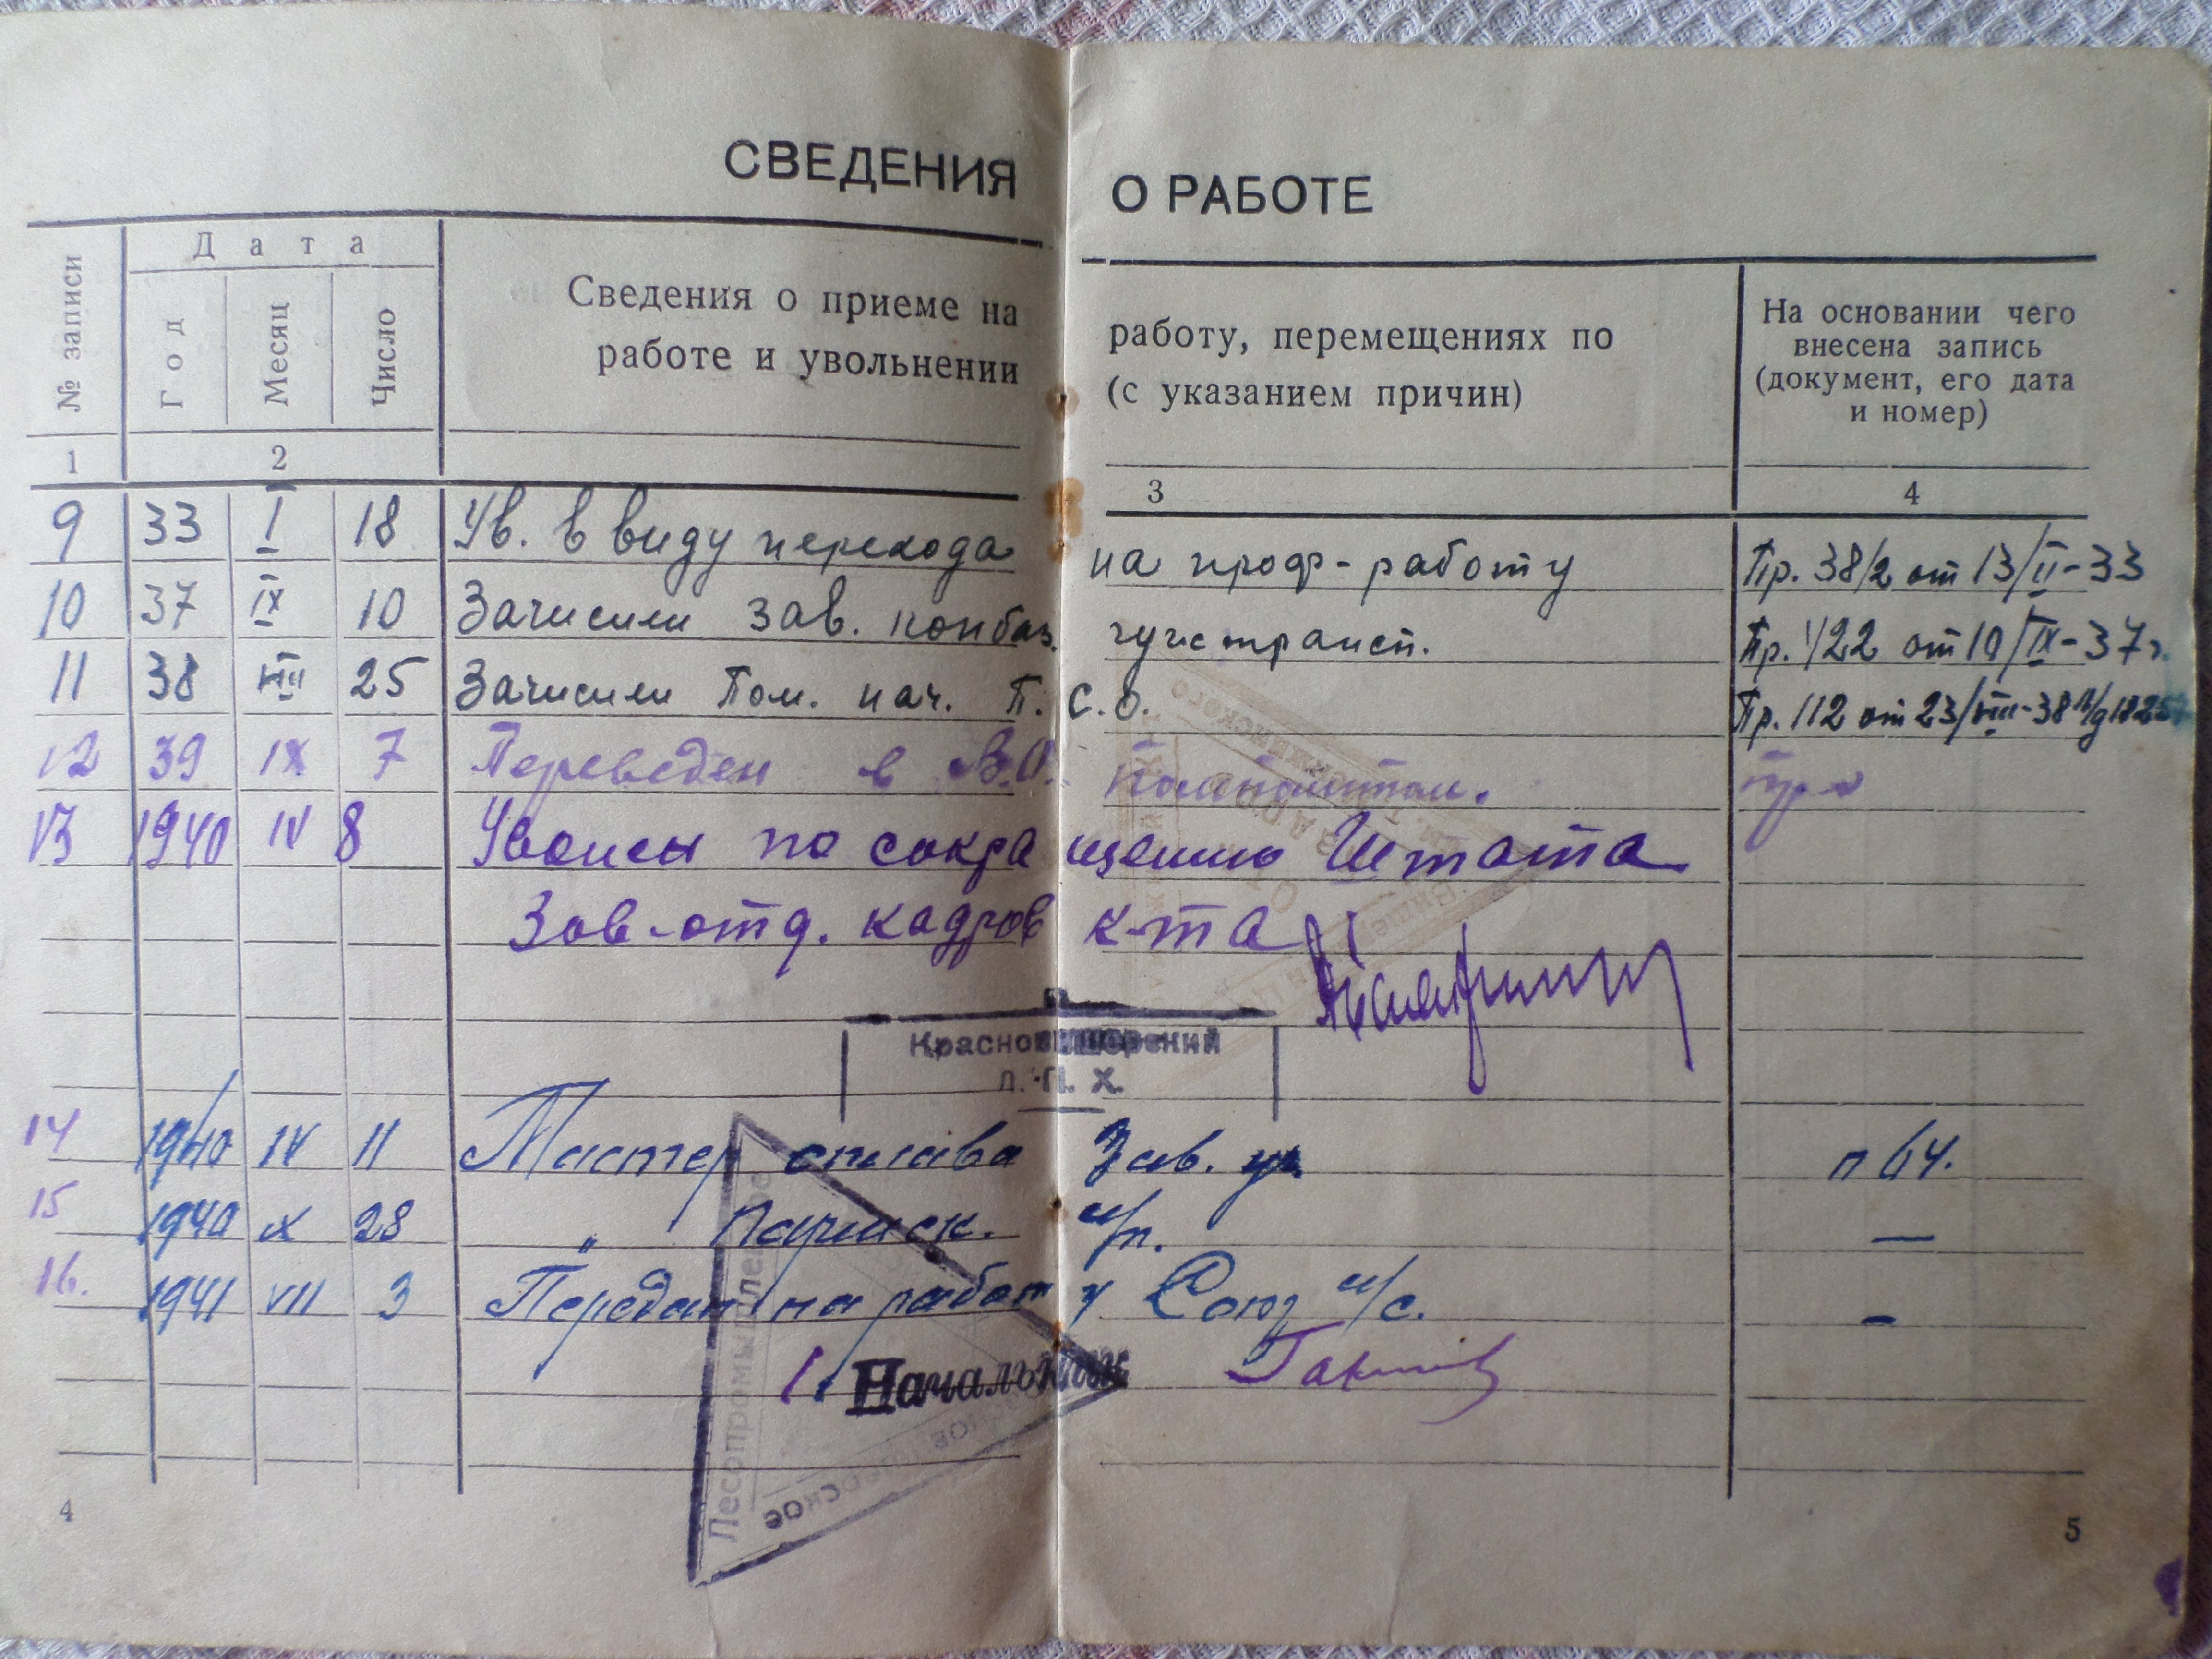 СВЕДЕНИЯ О РАБОТЕ
№ записи
Дата
Год
Месяц
Число
Сведения о приеме на работу, перемещениях по
работе и увольнении (с указанием причин)
На основании чего
внесена запись
(документ, его дата
и номер)
1 2 3 4
9 33 I 18 Ув. в виду перехода на проф-работу Пр. 38/2 от 13/II-33
10 37 IX 10 Зачислен зав. конбаз. гужтрансп. Пр. 122 от 10/IX-37г.
11 38 VIII 25 Зачислен Пом. нач. П.С.О. Пр. 112 от 23/VIII-38
12 39 IX 7 Переведен в В.О.
13 1940 IV 8 Уволен по сокращению Штата
Зав-отд. кадров к-та
Красновишерский
Л. П. Х.
14 1940 IV 11 Мастер сплава Зав. п 64.
15 1940 IX 28 " м/п. —
16. 1941 VII 3 Передан на работу Союз –
Начальник
4 5